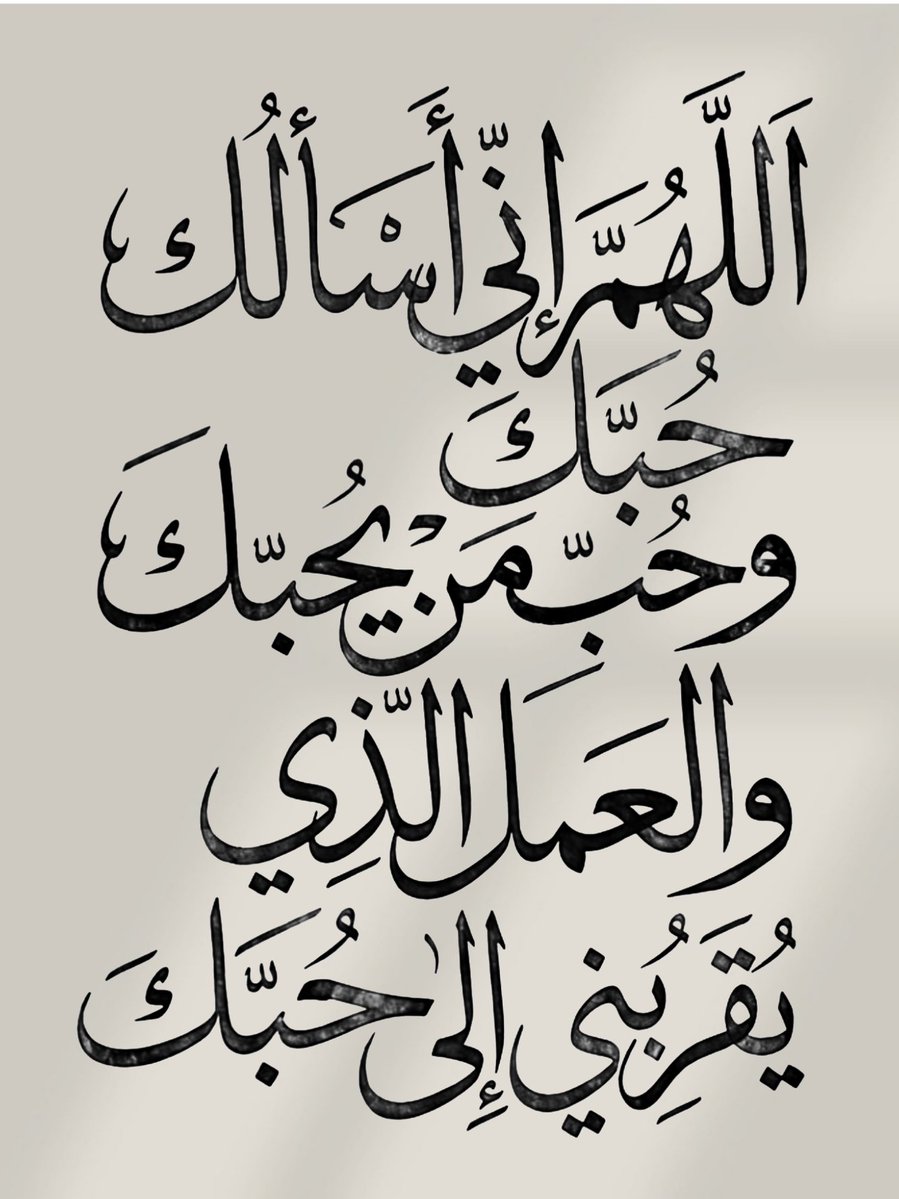 اَللَّهُمَّ إنّي أَسْأَلُك
حُبَّكَ
وحُبّ مَنْ يُحبّكَ
والعَمَلَ الّذِي
يُقَرِبُني إِلىٰ حُبَّكَ